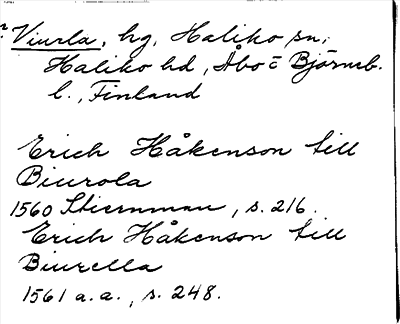 Viurla, hg, Haliko sn,
Haliko hd, Åbo o Björneb.
l., Finland
Erich Håkenson till
Biurola
1560 Stiernman, s. 216
Erich Håkenson till
Biurella
1561 a.a., s. 248.